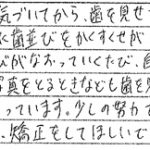 気づいてから、歯を見せ
に歯並びをかくすくせが
びがなおっていくたび、
写真をとるときなども歯を
っています。少しの努力で
、矯正をしてほしいで